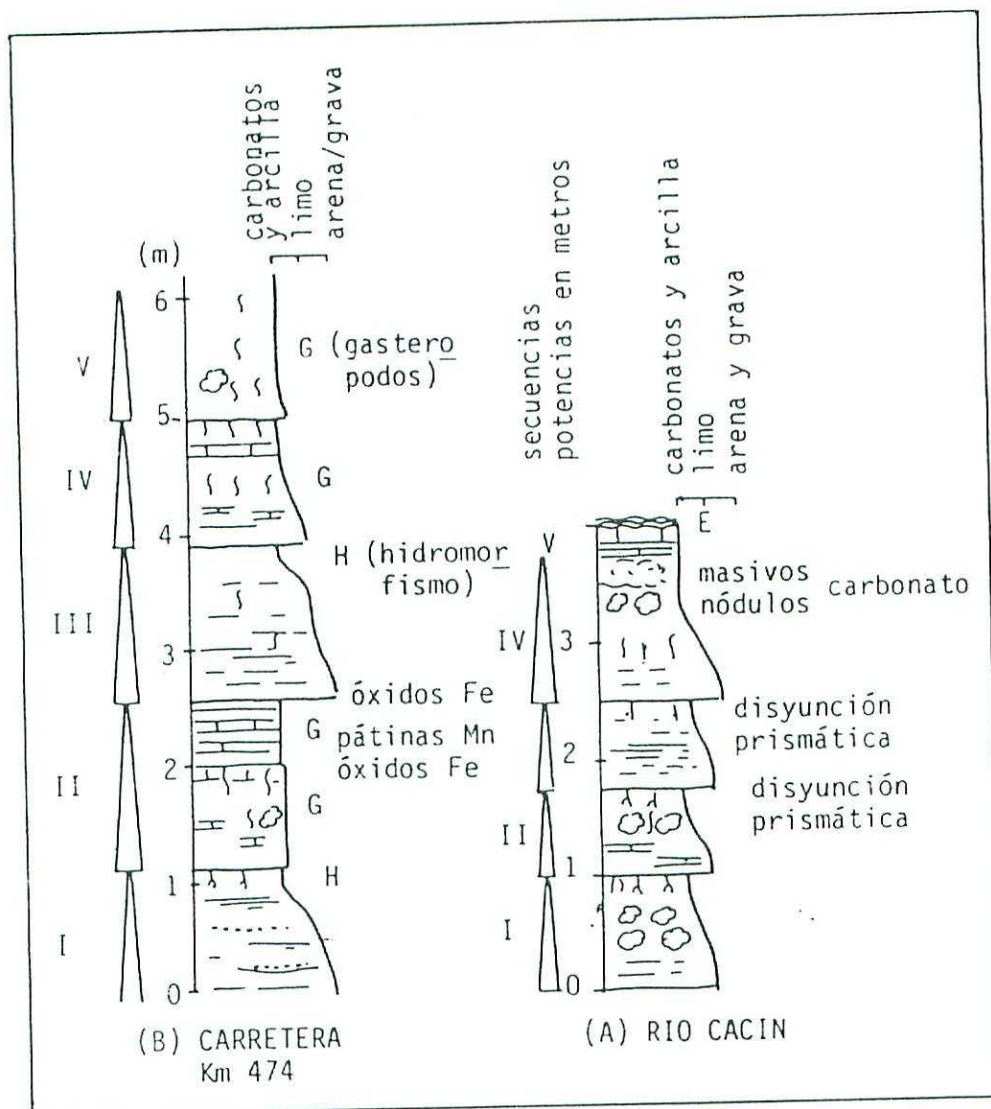 carbonatos
y arcilla
limo
arena/grava
(m)
6
5
4
3
2
1
0
V
IV
III
II
I
G (gastero
podos)
G
H (hidromor
fismo)
óxidos Fe
G pátinas Mn
óxidos Fe
G
H
(B) CARRETERA
Km 474
secuencias
potencias en metros
carbonatos y arcilla
limo
arena y grava
E
V
IV
II
I
3
2
1
0
masivos
nódulos
carbonato
disyunción
prismática
disyunción
prismática
(A) RIO CACIN